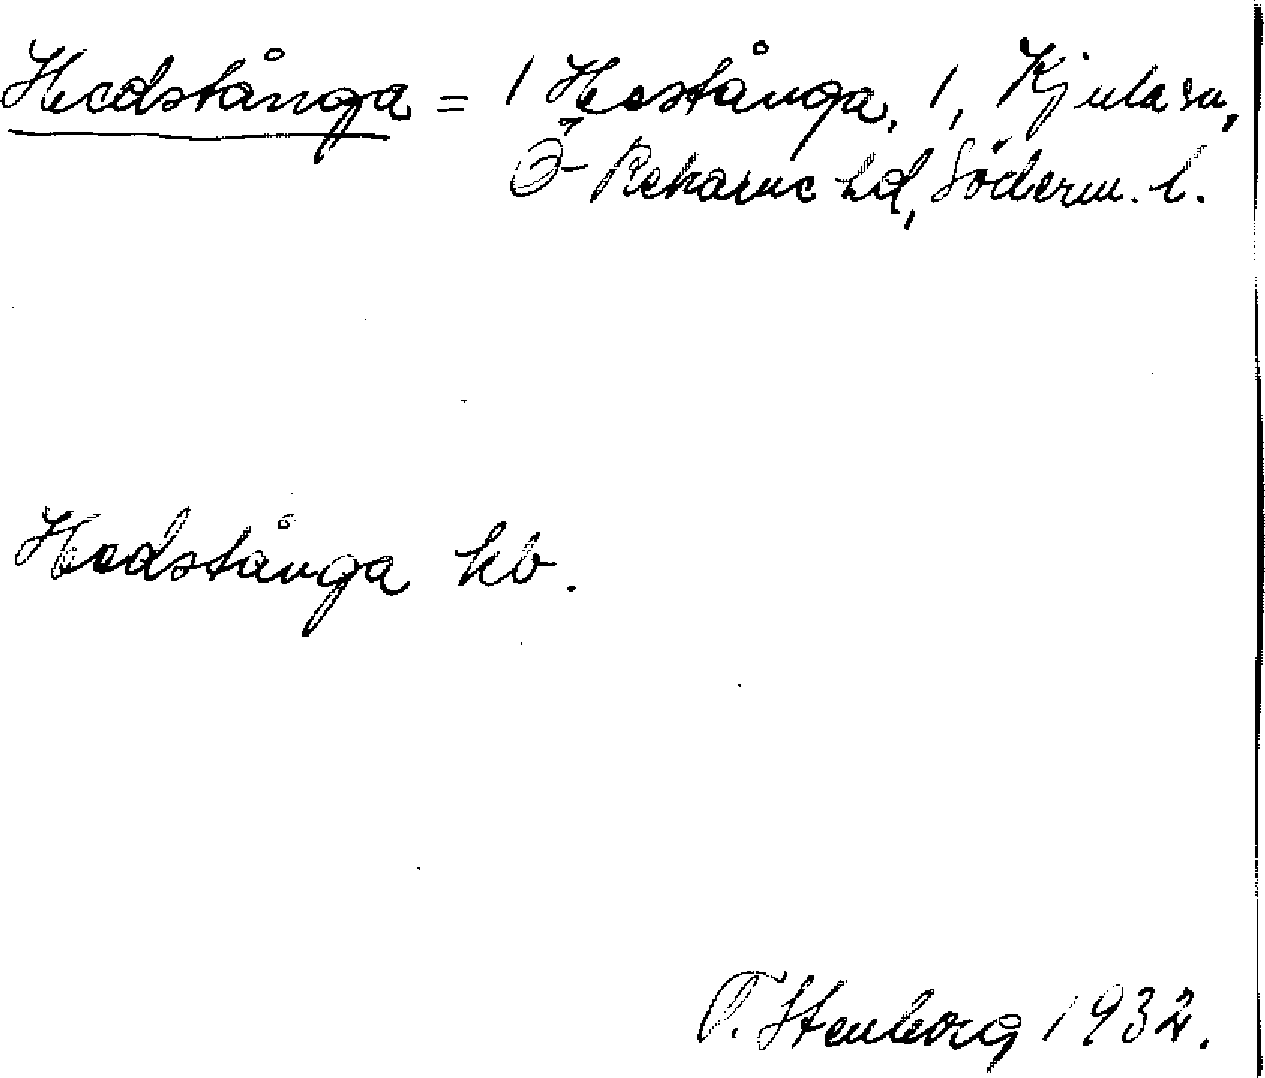 Hedstånga = 1 Hestånga, 1, Kjula sn,
Ö-Rekarne hd, Söderm. l.
Hedstånga kb.
T. Stenborg 1932.